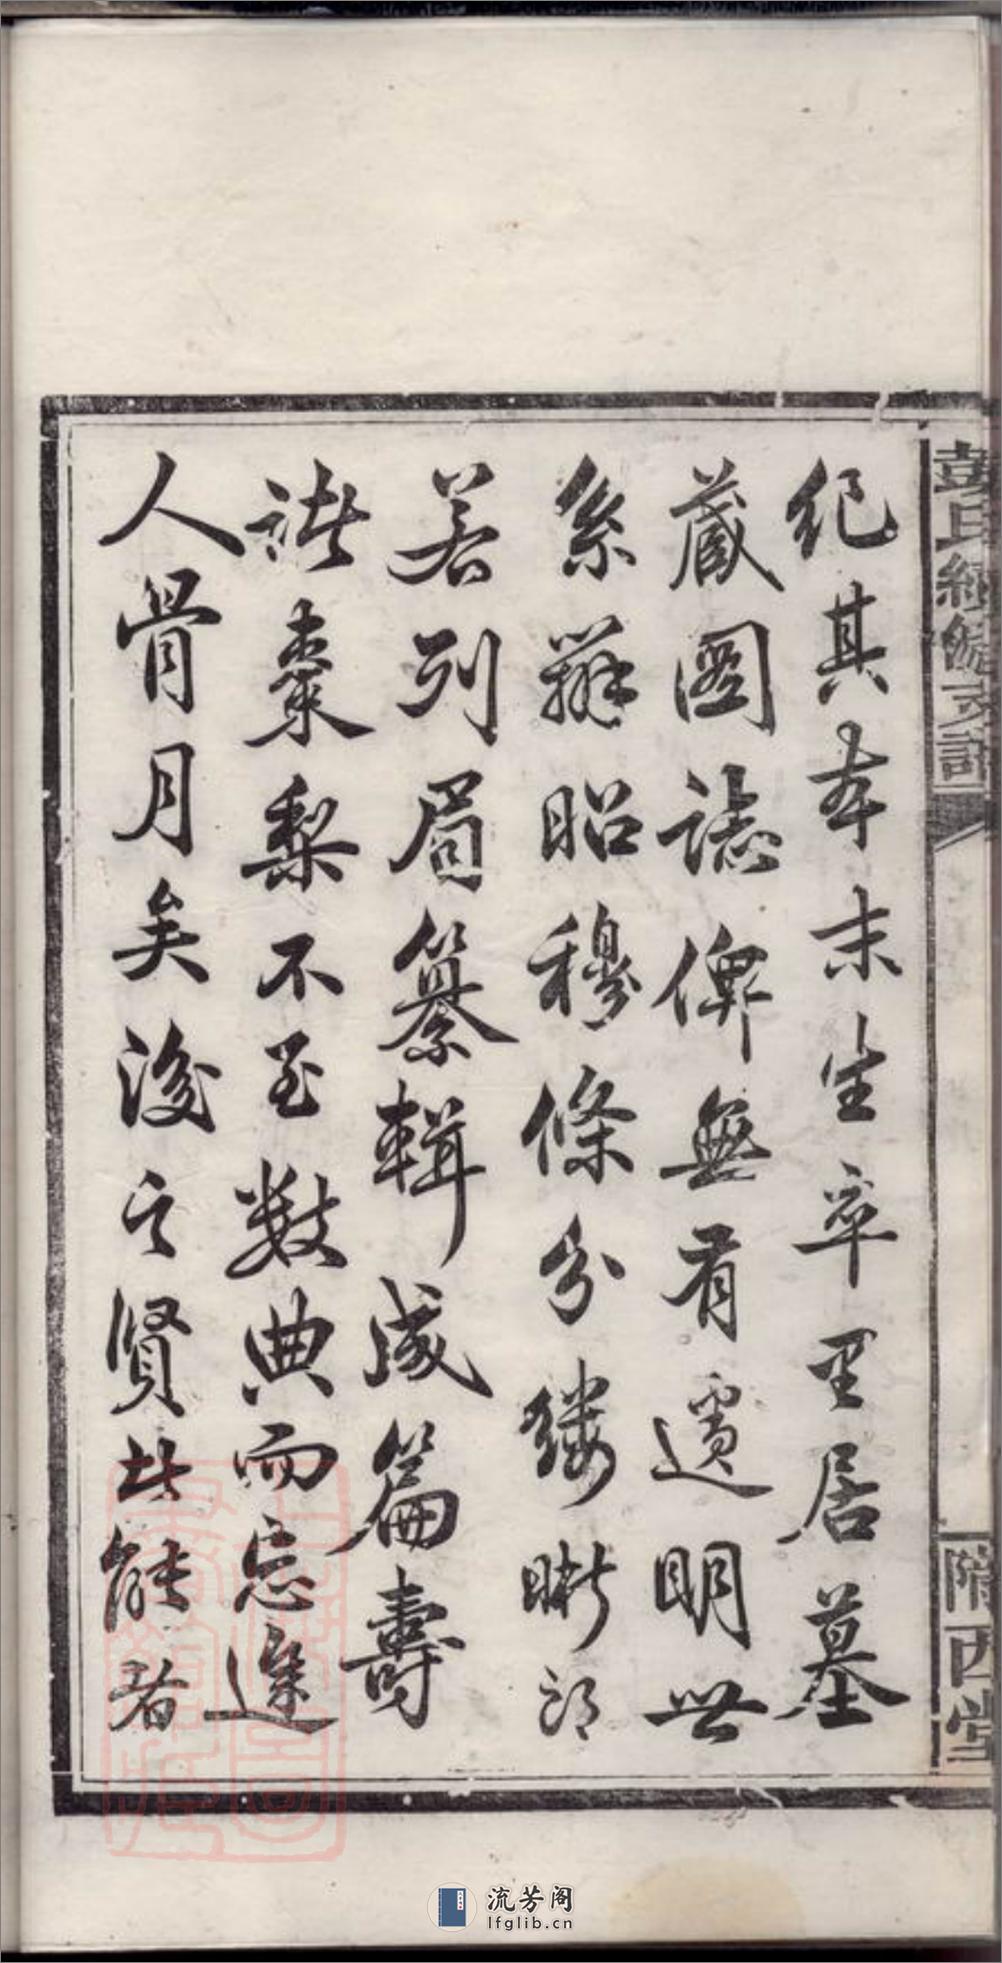 紀其本末生卒里居墓
蔵圖誌俾無有遺明世
系辨昭穆條分縷晰朗
若列眉纂輯成篇壽
諸棗梨不至數典而忘遂
人骨月矣後之賢其能者
氏續修支譜
隴西堂
流芳阁
lfglib.cn